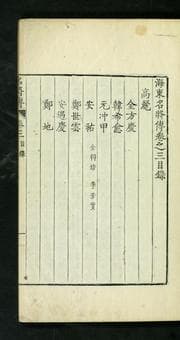 海東名將傳卷之三目錄
高麗
金方慶
韓希愈
元冲甲
安祐 金得培 李芳實
鄭世雲
安遇慶
鄭地